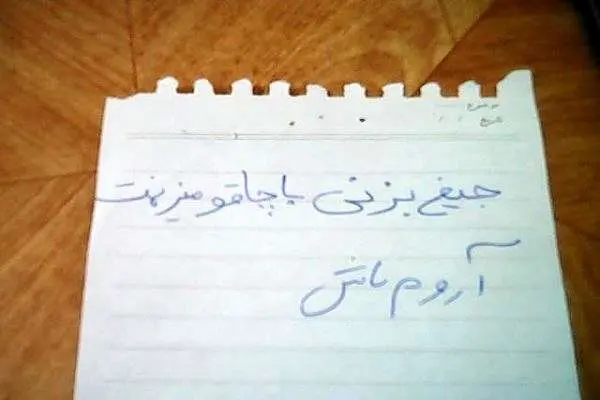 جیغ بزنی باچاقو میزنمت
آروم باش